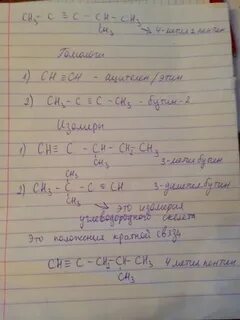 CH₃ - C ≡ C - CH - CH₃
CH₃ → 4-метил 2 пентин
Гомологи
1) CH ≡ CH - ацетилен/этин
2) CH₃ - C ≡ C - CH₃ - бутин-2
Изомеры
1) CH ≡ C - CH - CH₂ - CH₃
CH₃ 3-метил бутин
2) CH₃ - C - C ≡ CH 3-диметил бутин
CH₃ → это изомерия
углеводородного скелета
Это положения кратной связи
CH ≡ C - CH₂ - CH - CH₃ 4 метил пентин
CH₃